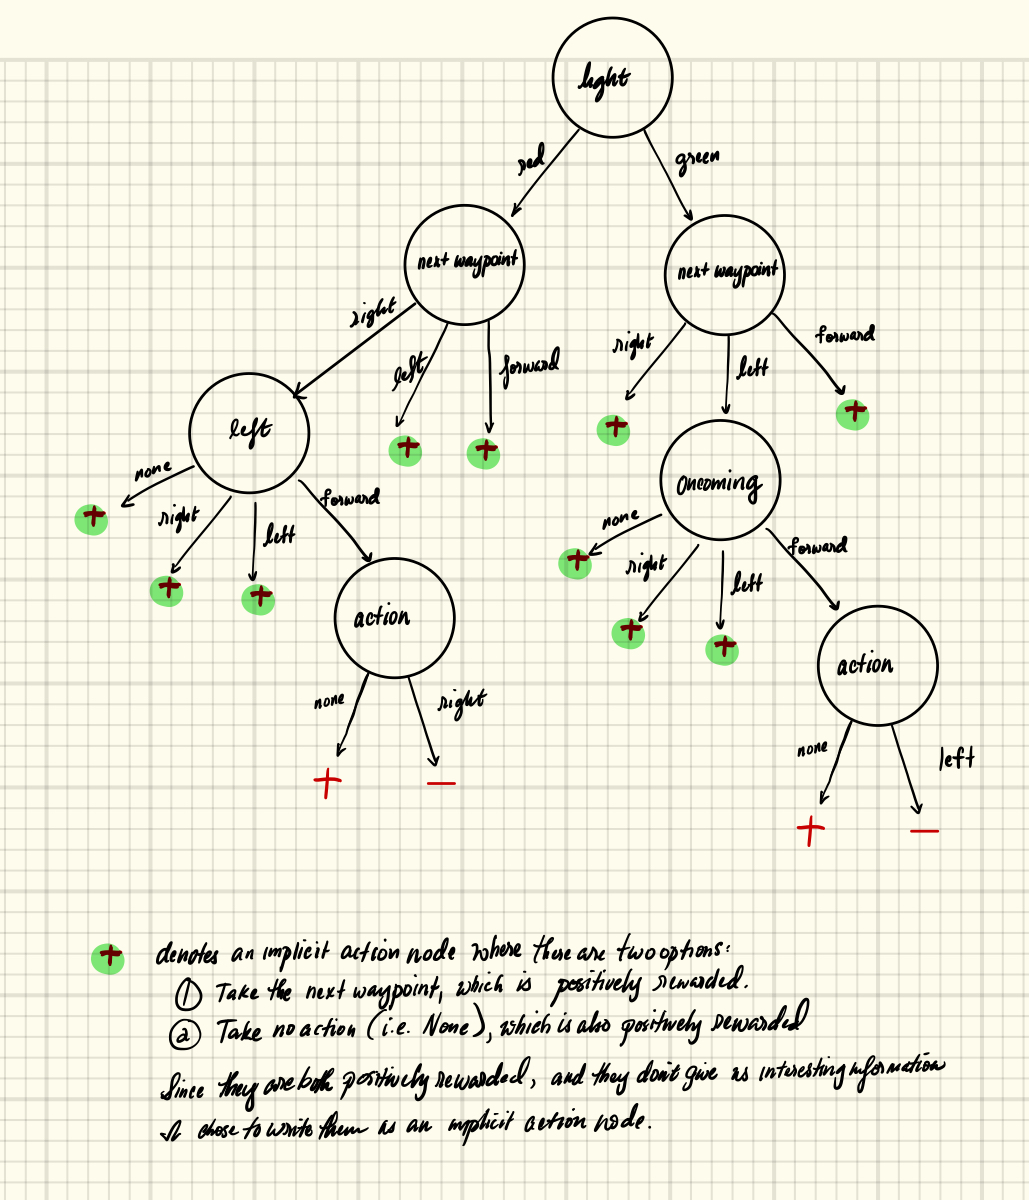 light
red
green
next waypoint
next waypoint
right
left
forward
right
left
forward
left
+
+
+
+
Oncoming
none
right
left
forward
none
right
left
forward
+
+
+
+
+
+
action
action
none
right
none
left
+
−
+
−
+ denotes an implicit action node where there are two options:
① Take the next waypoint, which is positively rewarded.
② Take no action (i.e. None), which is also positively rewarded
Since they are both positively rewarded, and they don't give us interesting information
I chose to write them as an implicit action node.